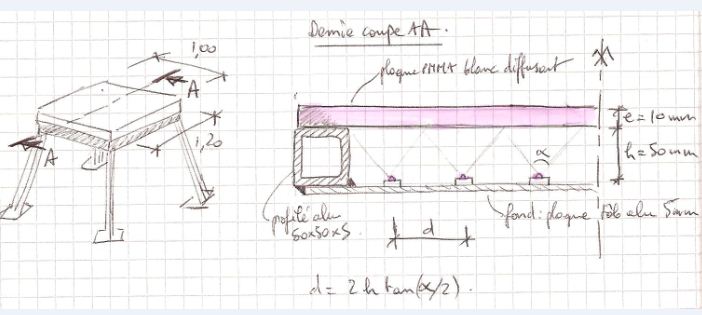 Demie coupe AA.
1,00
A
plaque PMMA blanc diffusant
1,20
A
e = 10mm
α
h = 50mm
profilé alu
50x50x5
d
fond: plaque tôle alu 5mm
d = 2 h tan(α/2).